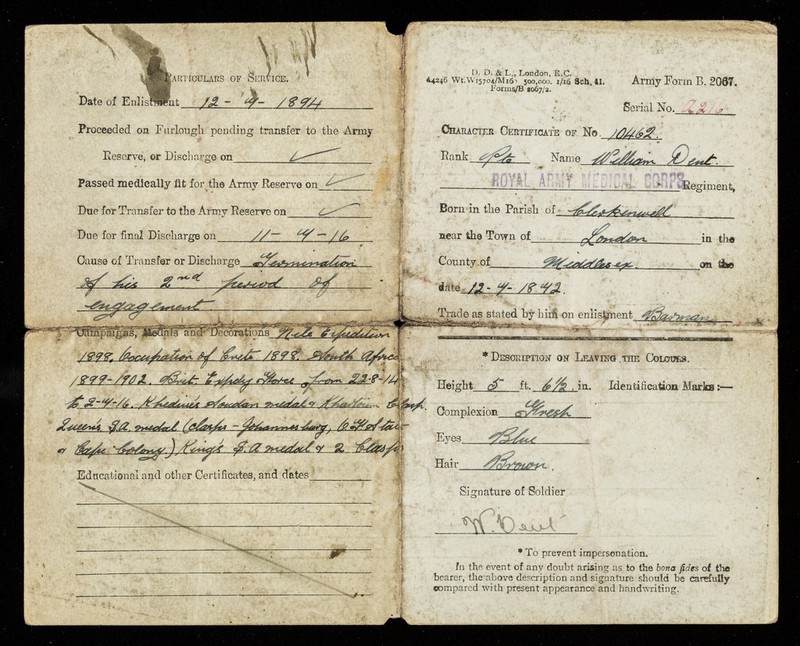 PARTICULARS OF SERVICE.
Date of Enlistment 12 - 4 - 1894
Proceeded on Furlough pending transfer to the Army
Reserve, or Discharge on
Passed medically fit for the Army Reserve on
Due for Transfer to the Army Reserve on
Due for final Discharge on 11 - 4 - 16
Cause of Transfer or Discharge Termination
of his 2nd period of
engagement
Campaigns, Medals and Decorations Nile Expedition
1898, Occupation of Crete 1898. South Africa
1899-1902. Brit. Expdy Force from 22-8-14
to 2-4-16. Khedive's Soudan medal & Khartoum Clasp.
Queen's S.A. medal (clasps - Johannesburg, O F State
& Cape Colony.) King's S.A medal & 2 Clasps
Educational and other Certificates, and dates
D. D. & L., London, E.C.
A4246 Wt.W15704/M16 500,000. 1/16 Sch. 41.
Forms/B 2067/2.
Army Form B. 2067.
Serial No.
CHARACTER CERTIFICATE OF No. 10462.
Rank Pte Name William Dent.
ROYAL ARMY MEDICAL CORPS Regiment,
Born in the Parish of Clerkenwell
near the Town of London in the
County of Middlesex. on the
date 12-4-1842.
Trade as stated by him on enlistment Barman
* DESCRIPTION ON LEAVING THE COLOURS.
Height 5 ft. 6½ in. Identification Marks :—
Complexion Fresh
Eyes Blue
Hair Brown.
Signature of Soldier
W. Dent
* To prevent impersonation.
In the event of any doubt arising as to the bona fides of the
bearer, the above description and signature should be carefully
compared with present appearance and handwriting.